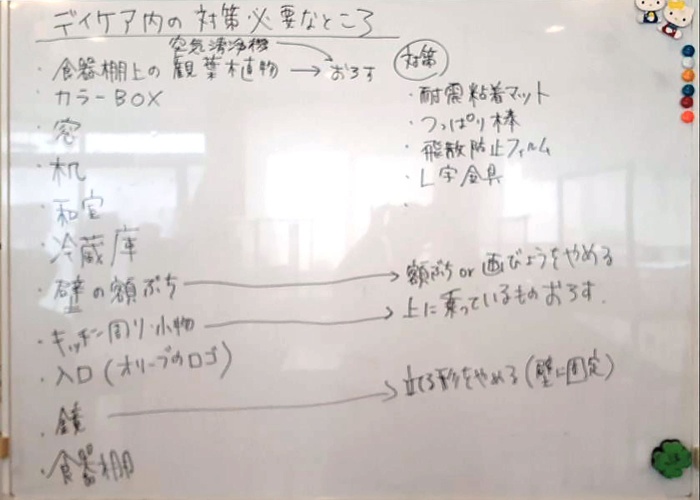 デイケア内の対策必要なところ
空気清浄機
・食器棚上の観葉植物 → おろす
・カラーBOX
・窓
・机
・和室
・冷蔵庫
・壁の額ぶち → 額ぶち or 画びょうをやめる
・キッチン周り・小物 → 上に乗っているものおろす.
・入口(オリーブのロゴ)
・鏡 → 立てる形をやめる(壁に固定)
・食器棚
対策
・耐震粘着マット
・つっぱり棒
・飛散防止フィルム
・L字金具
・